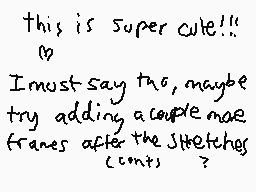 this is super cute!!!
♡
I must say tho, maybe
try adding a couple moe
frames after the stretches
(cont> ?